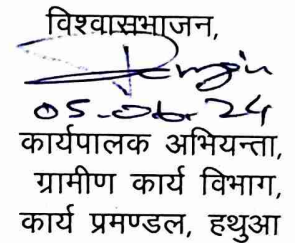 विश्वासभाजन,
05-06-24
कार्यपालक अभियन्ता,
ग्रामीण कार्य विभाग,
कार्य प्रमण्डल, हथुआ